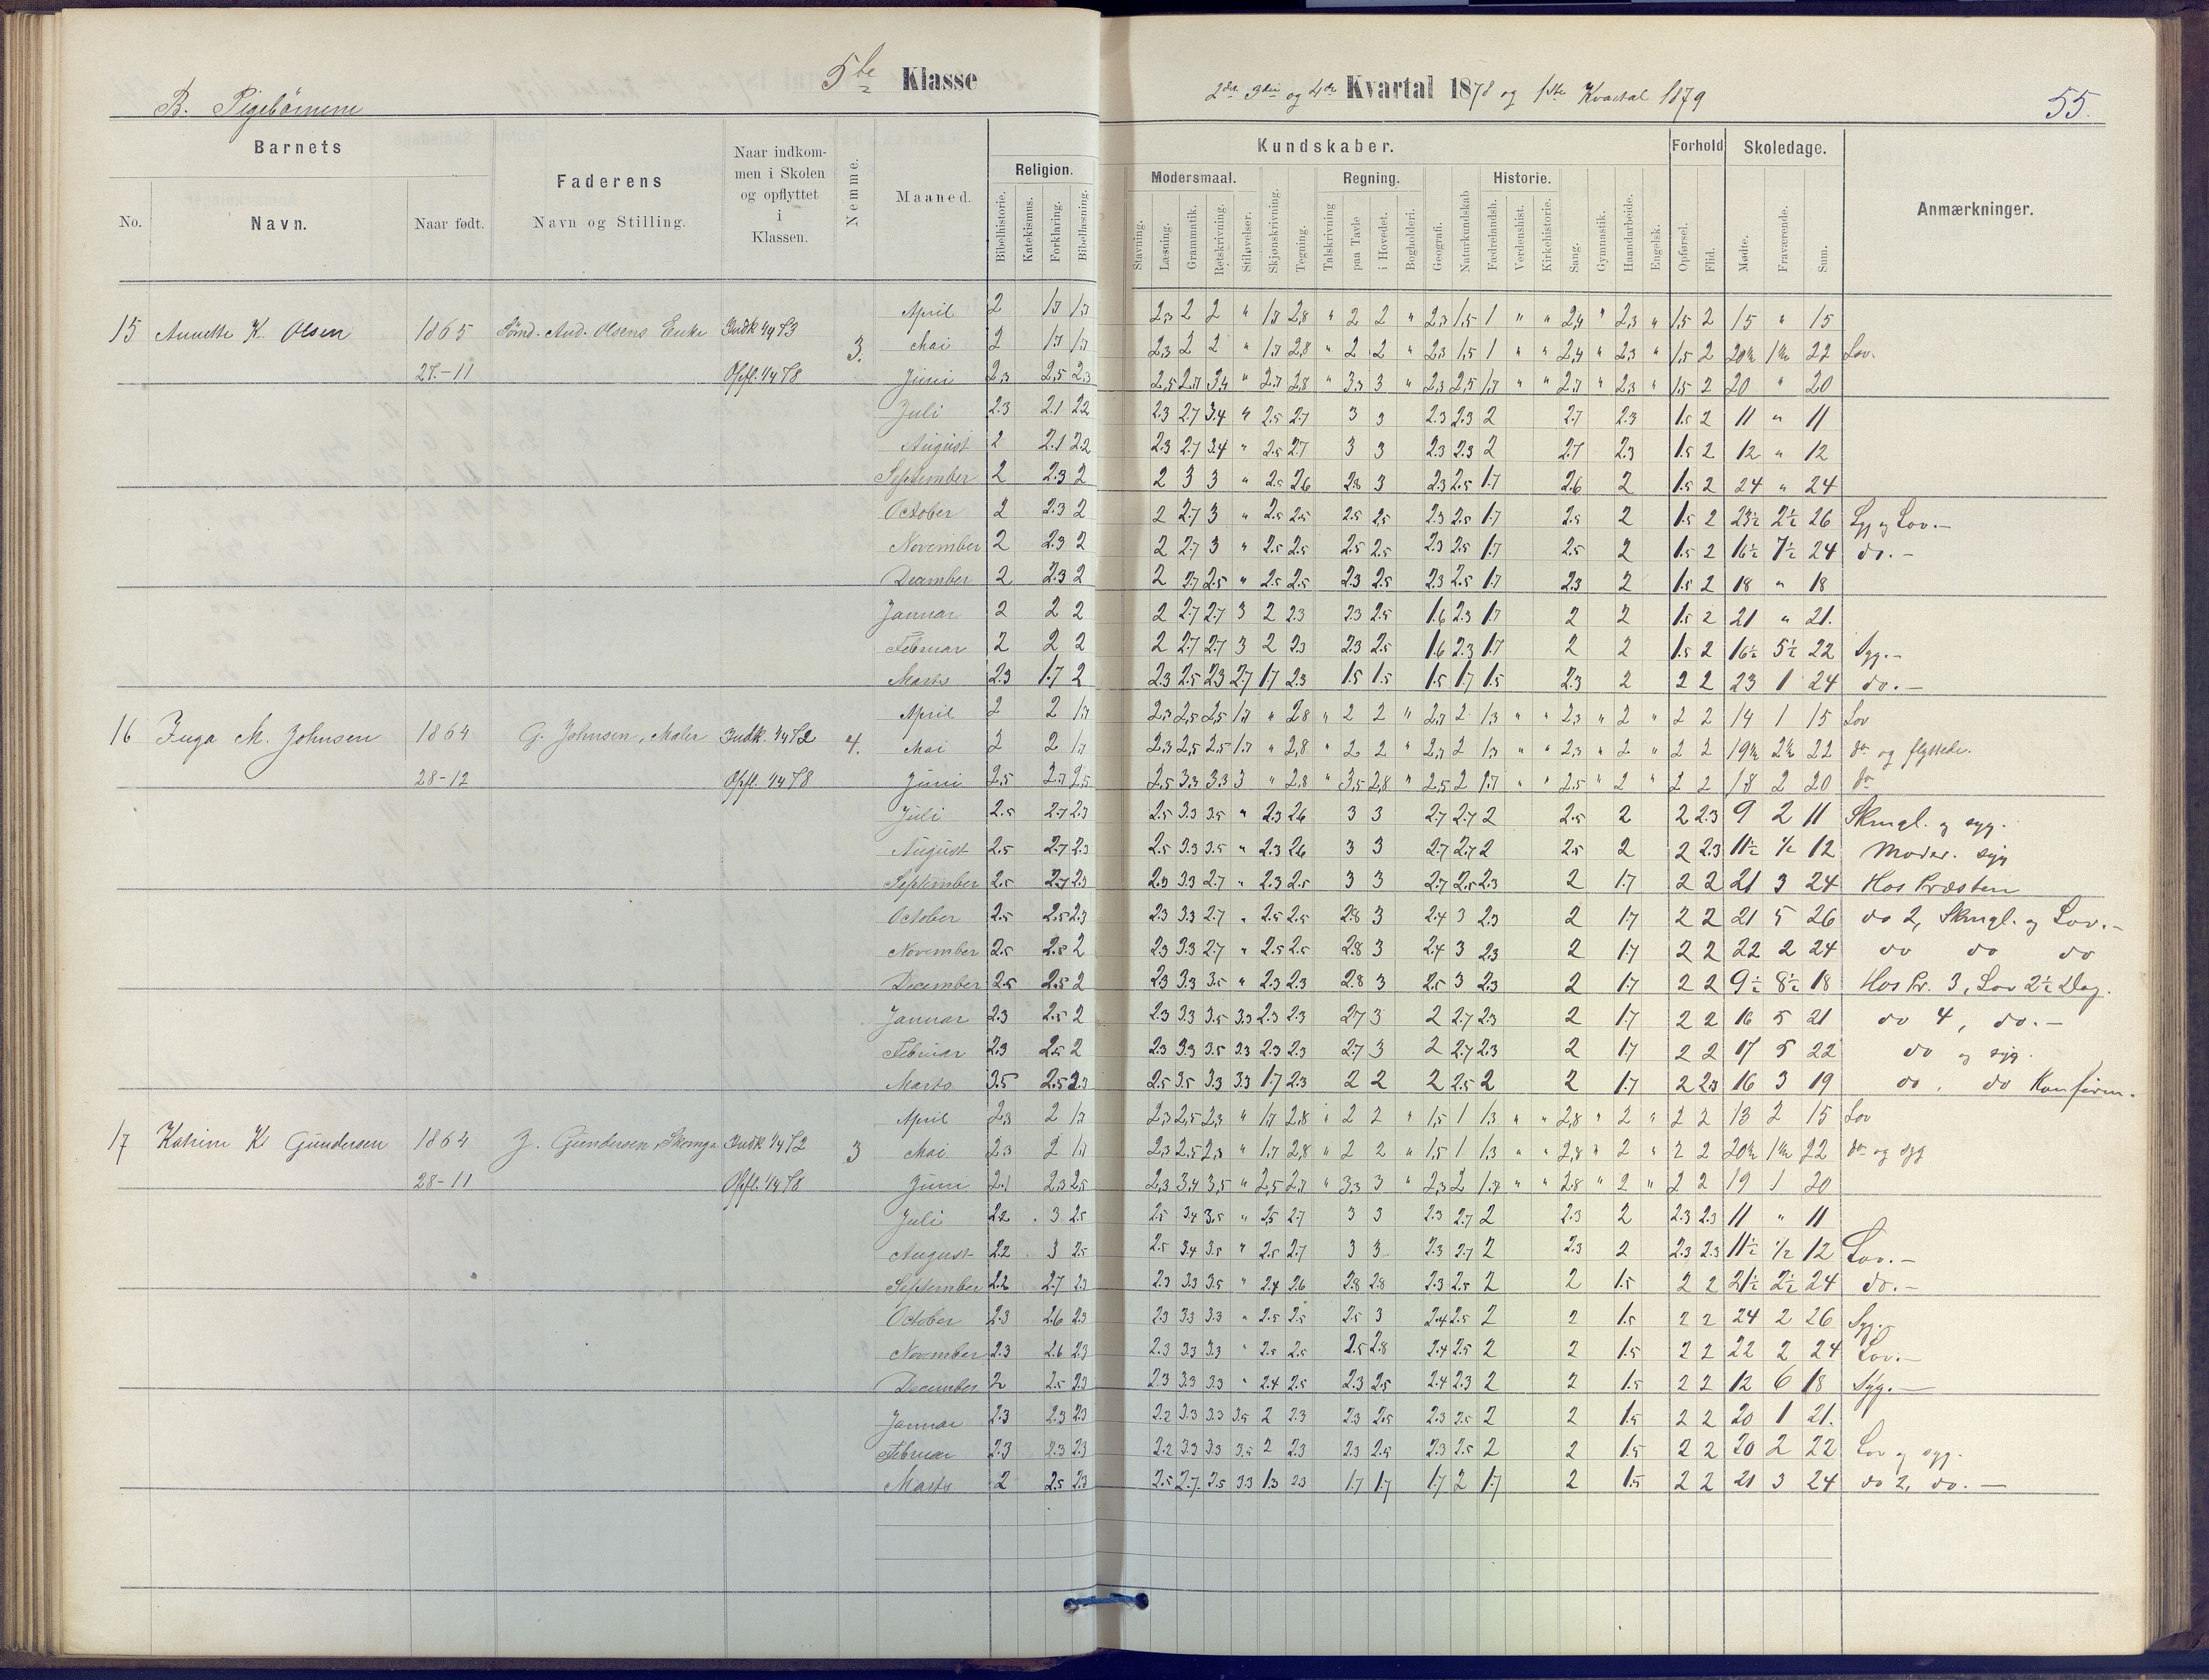 5te Klasse
2det 3die og 4de Kvartal 1878 og 1ste Kvartal 1879
55.
B. Pigebørnene
Barnets
No.
Navn.
Naar født.
Faderens
Navn og Stilling.
Naar indkom-
men i Skolen
og opflyttet
i
Klassen.
Nemme.
Maaned.
Kundskaber.
Religion.
Bibelhistorie.
Katekismus.
Forklaring.
Bibellæsning.
Modersmaal.
Stavning.
Læsning.
Grammatik.
Retskrivning.
Stiløvelser.
Skjønskrivning.
Tegning.
Regning.
Talskrivning
paa Tavle
i Hovedet.
Bogholderi.
Geografi.
Naturkundskab
Historie.
Fædrelandsh.
Verdenshist.
Kirkehistorie.
Sang.
Gymnastik.
Haandarbeide.
Engelsk.
Forhold
Opførsel.
Flid.
Skoledage.
Mødte.
Fraværende.
Sum.
Anmærkninger.
15 Annette K. Olsen 1865 And. Olsens Enke 3.
27.-11
April 2 1,7 1,7 2,3 2 2 " 1,7 2,8 " 2 2 " 2,3 1,5 1 " " 2,4 " 2,3 " 1,5 2 15 " 15
Mai 2 1,7 1,7 2,3 2 2 " 1,7 2,8 " 2 2 " 2,3 1,5 1 " " 2,4 " 2,3 " 1,5 2 20½ 1½ 22 Lov.
Juni 2,3 2,5 2,3 2,5 2,7 3,4 " 2,7 2,8 " 3,3 3 " 2,3 2,5 1,7 " " 2,7 " 2,3 " 1,5 2 20 " 20
Juli 2.3 2.1 2.2 2.3 2.7 3.4 " 2.5 2.7 3 3 2.3 2.3 2 2.7 2.3 1.5 2 11 " 11
August 2 2.1 2.2 2.3 2.7 3.4 " 2.5 2.7 3 3 2.3 2.3 2 2.7 2.3 1.5 2 12 " 12
September 2 2.3 2 2 3 3 " 2.5 2.6 2.8 3 2.3 2.5 1.7 2.6 2 1.5 2 24 " 24
October 2 2.3 2 2 2.7 3 " 2.5 2.5 2.5 2.5 2.3 2.5 1.7 2.5 2 1.5 2 23½ 2½ 26 Syg og Lov.-
November 2 2.3 2 2 2.7 3 " 2.5 2.5 2.5 2.5 2.3 2.5 1.7 2.5 2 1.5 2 16½ 7½ 24 do.-
December 2 2.3 2 2 2.7 2.5 " 2.5 2.5 2.3 2.5 2.3 2.5 1.7 2.3 2 1.5 2 18 " 18
Januar 2 2 2 2 2.7 2.7 3 2 2.3 2.3 2.5 1.6 2.3 1.7 2 2 1.5 2 21 " 21.
Februar 2 2 2 2 2.7 2.7 3 2 2.3 2.3 2.5 1.6 2.3 1.7 2 2 1.5 2 16½ 5½ 22 Syg.-
Marts 2.3 1.7 2 2.3 2.5 2.3 2.7 1.7 2.3 1.5 1.5 1.5 1.7 1.5 2.3 2 2 2 23 1 24 do.-
16 Inga M. Johnsen 1864 G. Johnsen, Maler Indk. 1/4 72 4.
28-12 Opfl. 1/4 78
April 2 2 1,7 2,3 2,5 2,5 1,7 " 2,8 " 2 2 " 2,7 2 1,3 " " 2,3 " 2 " 2 2 14 1 15 Lov
Mai 2 2 1,7 2,3 2,5 2,5 1,7 " 2,8 " 2 2 " 2,7 2 1,3 " " 2,3 " 2 " 2 2 19½ 2½ 22 do og flyttede.
Juni 2,5 2,7 2,5 2,5 3,3 3,3 3 " 2,8 " 3,5 2,8 " 2,5 2 1,7 " " 2,5 " 2 " 2 2 18 2 20 do
Juli 2.5 2.7 2.3 2.5 3.3 3.5 " 2.3 2.6 3 3 2.7 2.7 2 2.5 2 2 2.3 9 2 11 Skmgl. og syg.
August 2.5 2.7 2.3 2.5 3.3 3.5 " 2.3 2.6 3 3 2.7 2.7 2 2.5 2 2 2.3 11½ ½ 12 Moder. syg
September 2.5 2.7 2.3 2.3 3.3 2.7 " 2.3 2.5 3 3 2.7 2.5 2.3 2 1.7 2 2 21 3 24 Hos Præsten
October 2.5 2.5 2.3 2.3 3.3 2.7 " 2.5 2.5 2.8 3 2.4 3 2.3 2 1.7 2 2 21 5 26 do 2, Skmgl. og Lov.-
November 2.5 2.5 2 2.3 3.3 2.7 " 2.5 2.5 2.8 3 2.4 3 2.3 2 1.7 2 2 22 2 24 do do do
December 2.5 2.5 2 2.3 3.3 3.5 " 2.3 2.3 2.8 3 2.5 3 2.3 2 1.7 2 2 9½ 8½ 18 Hos Pr. 3, Lov 2½ Dag.
Januar 2.3 2.5 2 2.3 3.3 3.5 3.3 2.3 2.3 2.7 3 2 2.7 2.3 2 1.7 2 2 16 5 21 do 4, do.-
Februar 2.3 2.5 2 2.3 3.3 3.5 3.3 2.3 2.3 2.7 3 2 2.7 2.3 2 1.7 2 2 17 5 22 do og syg.
Marts 3.5 2.5 2.3 2.5 3.5 3.3 3.3 1.7 2.3 2 2 2 2.5 2 2 1.7 2 2.3 16 3 19 do, do Konfirm.
17 Katrine K Gundersen 1864 J. Gundersen, Skomgr. Indk. 1/4 72 3
28-11 Opfl. 1/4 78
April 2,3 2 1,7 2,3 2,5 2,3 " 1,7 2,8 " 2 2 " 1,5 1 1,3 " " 2,8 " 2 " 2 2 13 2 15 Lov
Mai 2,3 2 1,7 2,3 2,5 2,3 " 1,7 2,8 " 2 2 " 1,5 1 1,3 " " 2,8 " 2 " 2 2 20½ 1½ 22 do og syg
Juni 2,1 2,3 2,5 2,3 3,4 3,5 " 2,5 2,7 " 3,3 3 " 2,3 2 1,7 " " 2,8 " 2 " 2 2 19 1 20
Juli 2.2 3 2.5 2.5 3.4 3.5 " 2.5 2.7 3 3 2.3 2.7 2 2.3 2 2.3 2.3 11 " 11
August 2.2 3 2.5 2.5 3.4 3.5 " 2.5 2.7 3 3 2.3 2.7 2 2.3 2 2.3 2.3 11½ ½ 12 Lov.-
September 2.2 2.7 2.3 2.3 3.3 3.5 " 2.4 2.6 2.8 2.8 2.3 2.5 2 2 1.5 2 2 21½ 2½ 24 do.-
October 2.3 2.6 2.3 2.3 3.3 3.3 " 2.5 2.5 2.5 3 2.4 2.5 2 2 1.5 2 2 24 2 26 Syg.-
November 2.3 2.6 2.3 2.3 3.3 3.3 " 2.5 2.5 2.5 2.8 2.4 2.5 2 2 1.5 2 2 22 2 24 Lov.-
December 2 2.5 2.3 2.3 3.3 3.3 " 2.4 2.5 2.3 2.5 2.4 2.3 2 2 1.5 2 2 12 6 18 Syg.-
Januar 2.3 2.3 2.3 2.2 3.3 3.3 3.5 2 2.3 2.3 2.5 2.3 2.5 2 2 1.5 2 2 20 1 21.
Februar 2.3 2.3 2.3 2.2 3.3 3.3 3.5 2 2.3 2.3 2.5 2.3 2.5 2 2 1.5 2 2 20 2 22 Lov og syg.
Marts 2 2.5 2.3 2.5 2.7 2.5 3.3 1.3 2.3 1.7 1.7 1.7 2 1.7 2 1.5 2 2 21 3 24 do 2, do.-